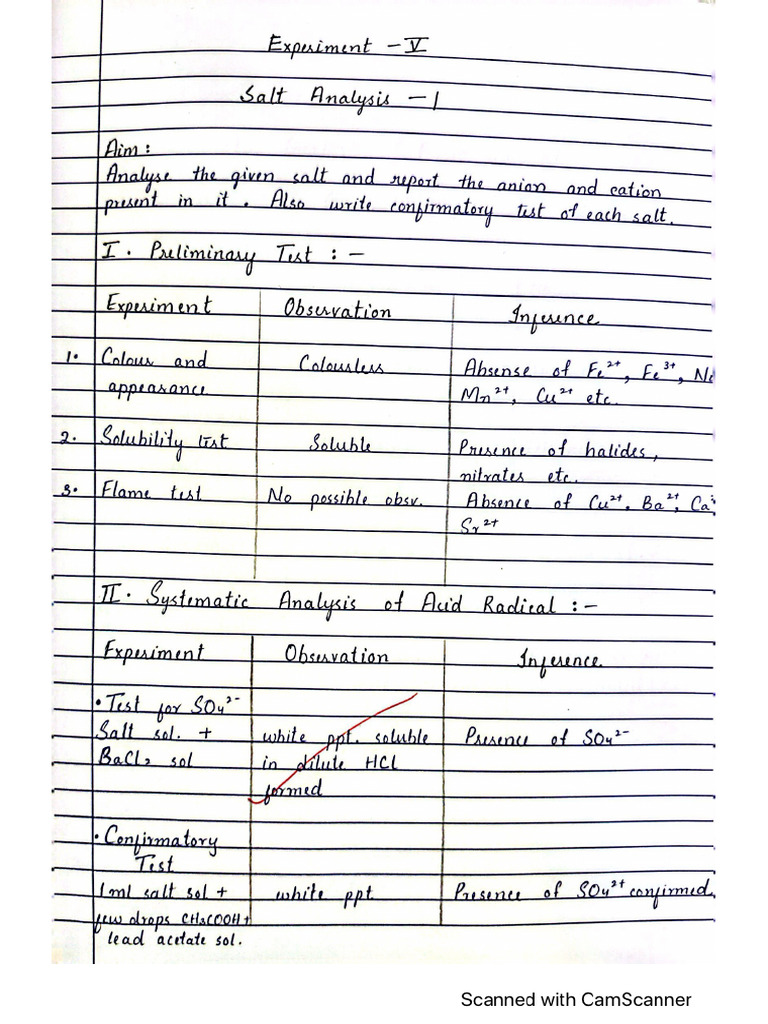 Experiment - V
Salt Analysis - 1
Aim :
Analyse the given salt and report the anion and cation
present in it. Also write confirmatory test of each salt.
I. Preliminary Test : -
Experiment Observation Inference
1. Colour and Colourless Absense of Fe²⁺, Fe³⁺, Ni
appearance Mn²⁺, Cu²⁺ etc.
2. Solubility test Soluble Presence of halides,
nitrates etc.
3. Flame test No possible obsv. Absence of Cu²⁺, Ba²⁺, Ca²
Sr²⁺
II. Systematic Analysis of Acid Radical : -
Experiment Observation Inference
• Test for SO₄²⁻
Salt sol. + white ppt. soluble Presence of SO₄²⁻
BaCl₂ sol in dilute HCl
formed
• Confirmatory
Test
1ml salt sol + white ppt. Presence of SO₄²⁺ confirmed
few drops CH₃COOH +
lead acetate sol.
Scanned with CamScanner